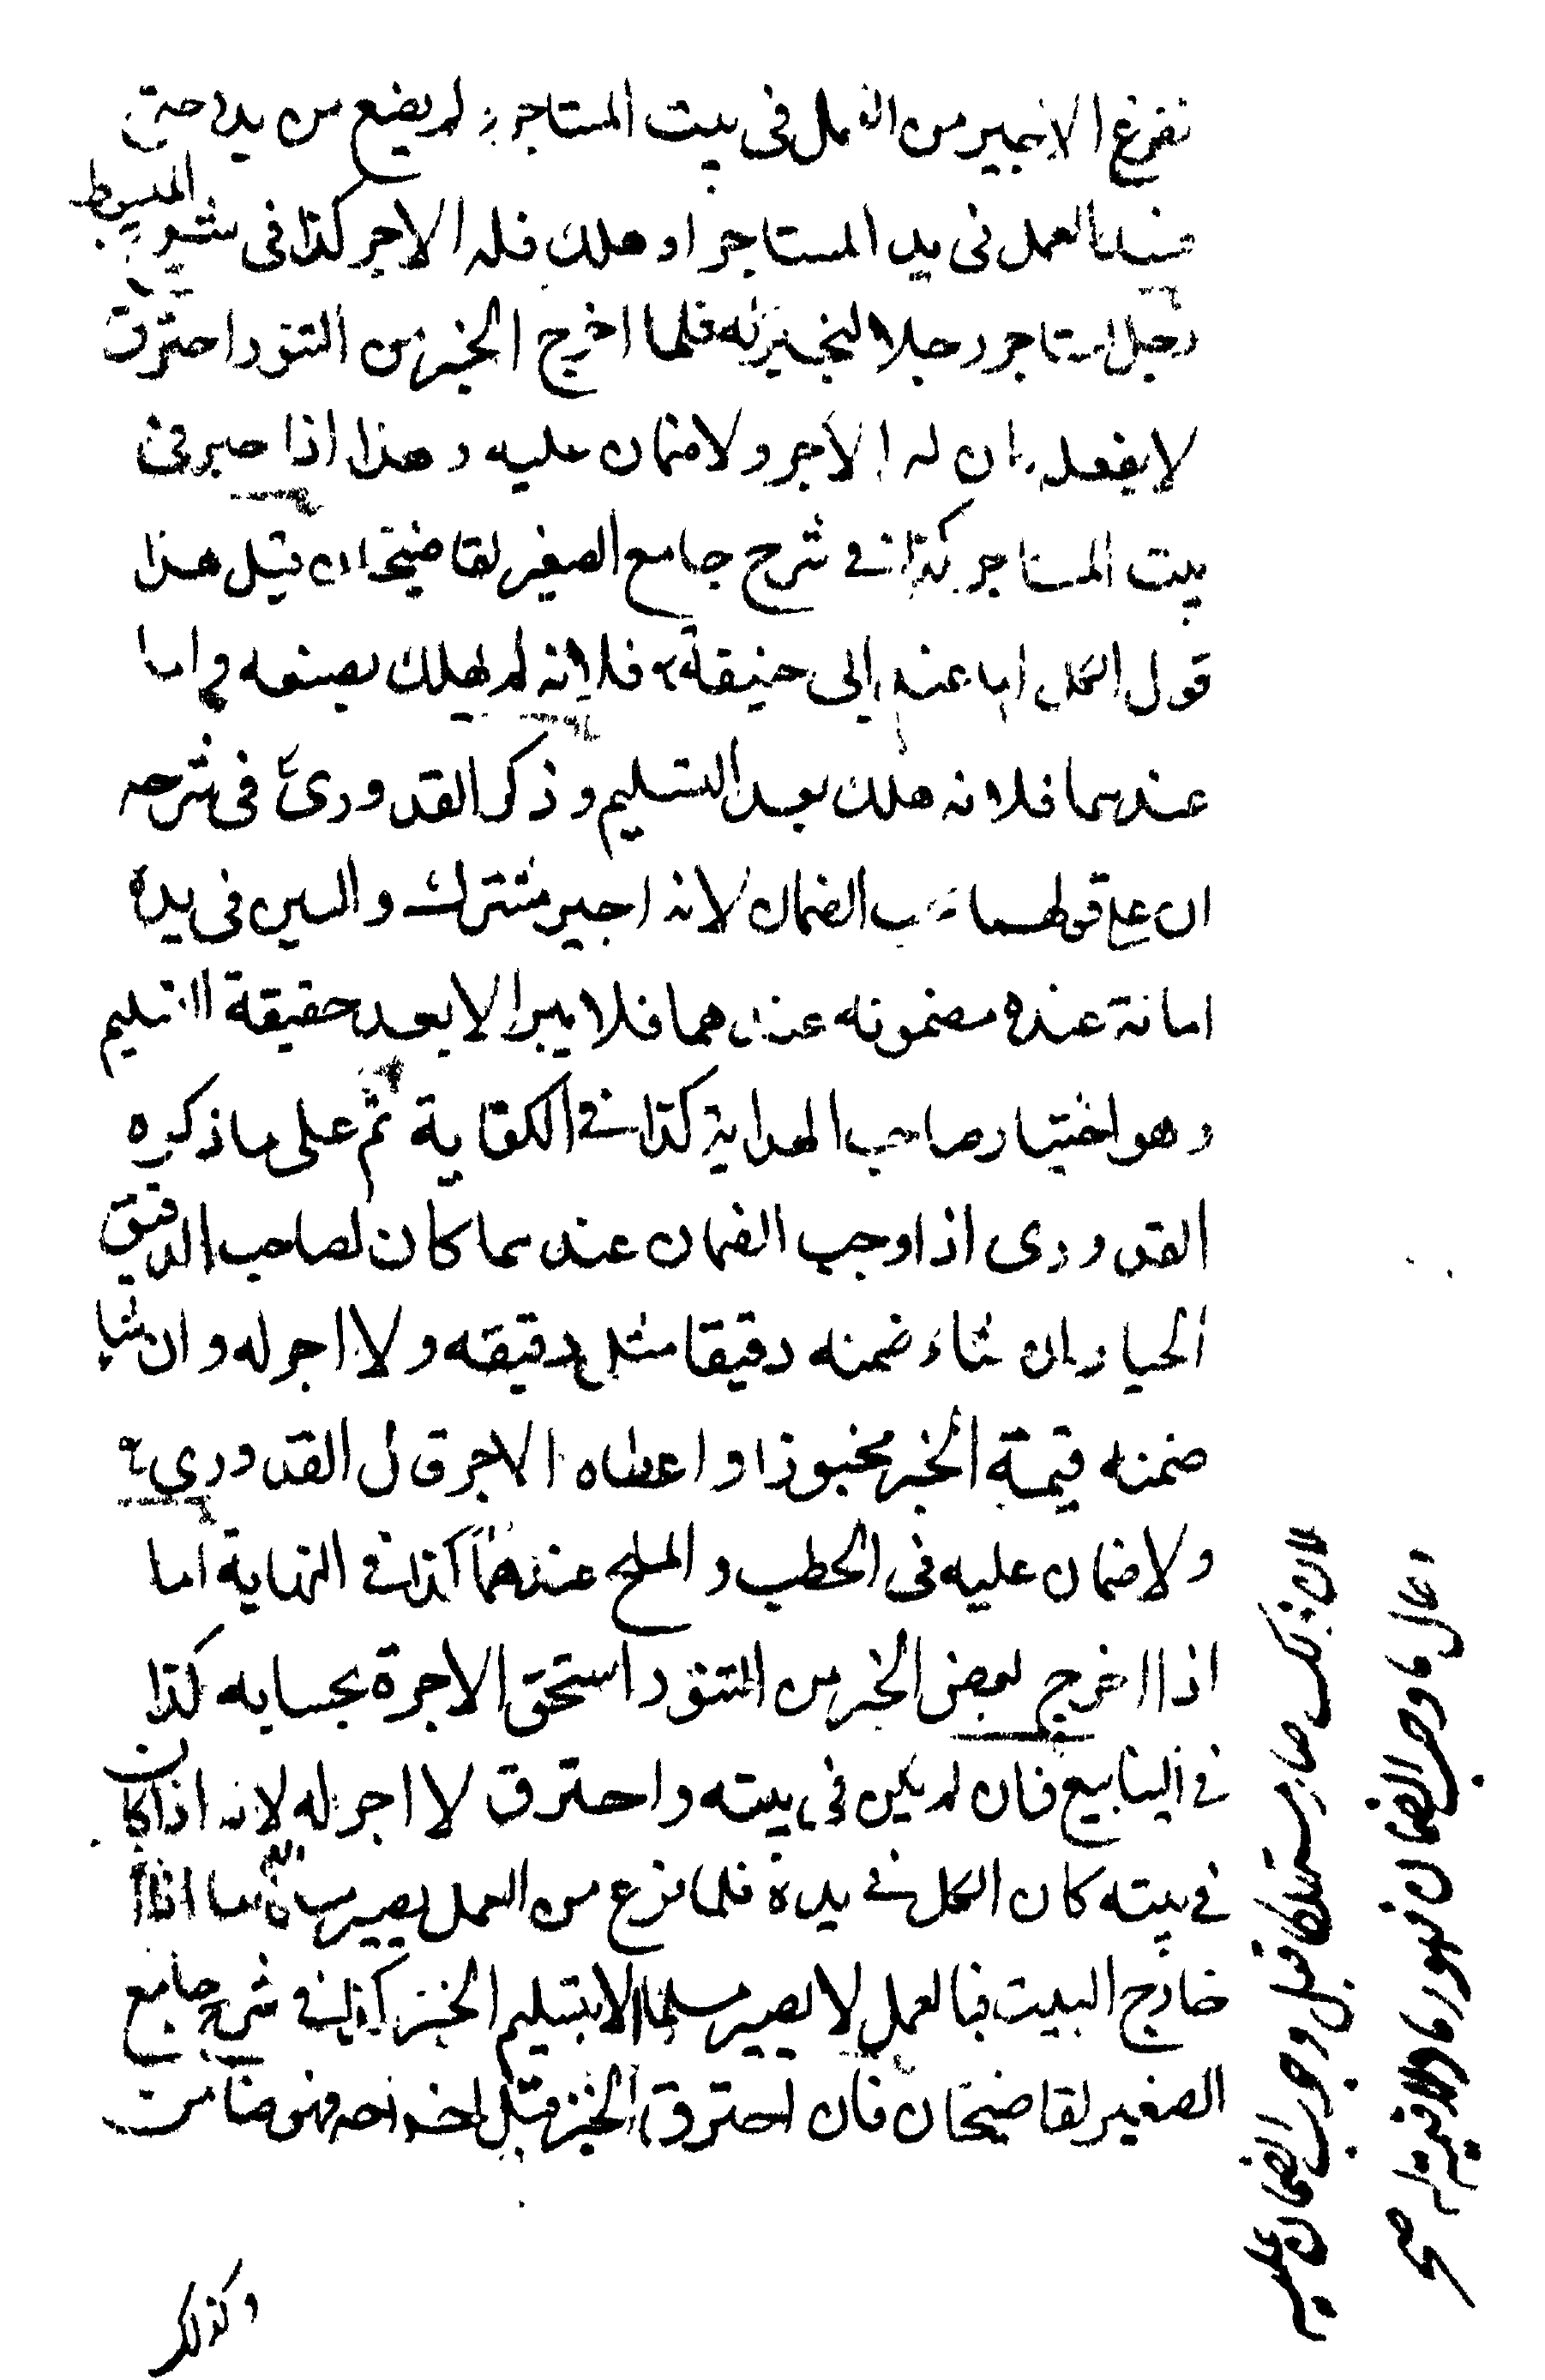 تفرغ الاجير من العمل فى بيت المستاجر لم يضع من يده حتى
فسد العمل فى يد المستاجر او هلك فله الاجر كذا فى المبسوط
رجل استاجر رجلا ليخبز له فلما اخرج الخبز من التنور احترق
لا بفعله كان له الاجر ولا ضمان عليه وهذا اذا خبز فى
بيت المستاجر كذا فى شرح جامع الصغير لقاضيخان قيل هذا
قول الكل اما عند ابى حنيفة فلانه لم يهلك بصنعه واما
عندهما فلانه هلك بعد التسليم و ذكر القدورى فى شرحه
ان على قولهما يجب الضمان لانه اجير مشترك والعين فى يده
امانة عنده مضمونه عندهما فلا يبرا الا بعد حقيقة التسليم
وهو اختيار صاحب الهداية كذا فى الكفاية ثم على ما ذكره
القدورى اذا وجب الضمان عندهما كان لصاحب الدقيق
الخيار ان شاء ضمنه دقيقا مثل دقيقه ولا اجر له وان شا
ضمنه قيمة الخبز مخبوزا واعطاه الاجر قال القدورى
ولا ضمان عليه فى الحطب والملح عندهما كذا فى النهاية اما
اذا اخرج بعض الخبز من التنور استحق الاجرة بحسابه كذا
فى الينابيع فان لم يكن فى بيته واحترق لا اجر له لانه اذا كان
فى بيته كان الكل فى يده فلما فرغ من العمل يصير مسلما اما اذا
خارج البيت فبالعمل لا يصير مسلما الا بتسليم الخبز كذا فى شرح جامع
الصغير لقاضيخان فان احترق الخبز قبل اخراجه فهو ضامن
لان ذلك صار مستهلكا قبل وجوب الضمان عليه
وحال ما وجب الضمان فهو رماد
وكذلك